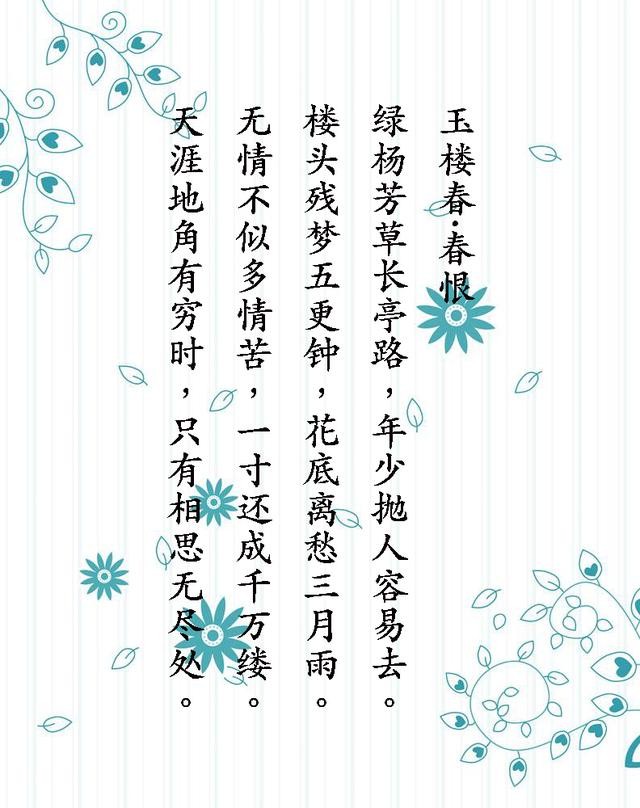 玉楼春·春恨
绿杨芳草长亭路，年少抛人容易去。
楼头残梦五更钟，花底离愁三月雨。
无情不似多情苦，一寸还成千万缕。
天涯地角有穷时，只有相思无尽处。